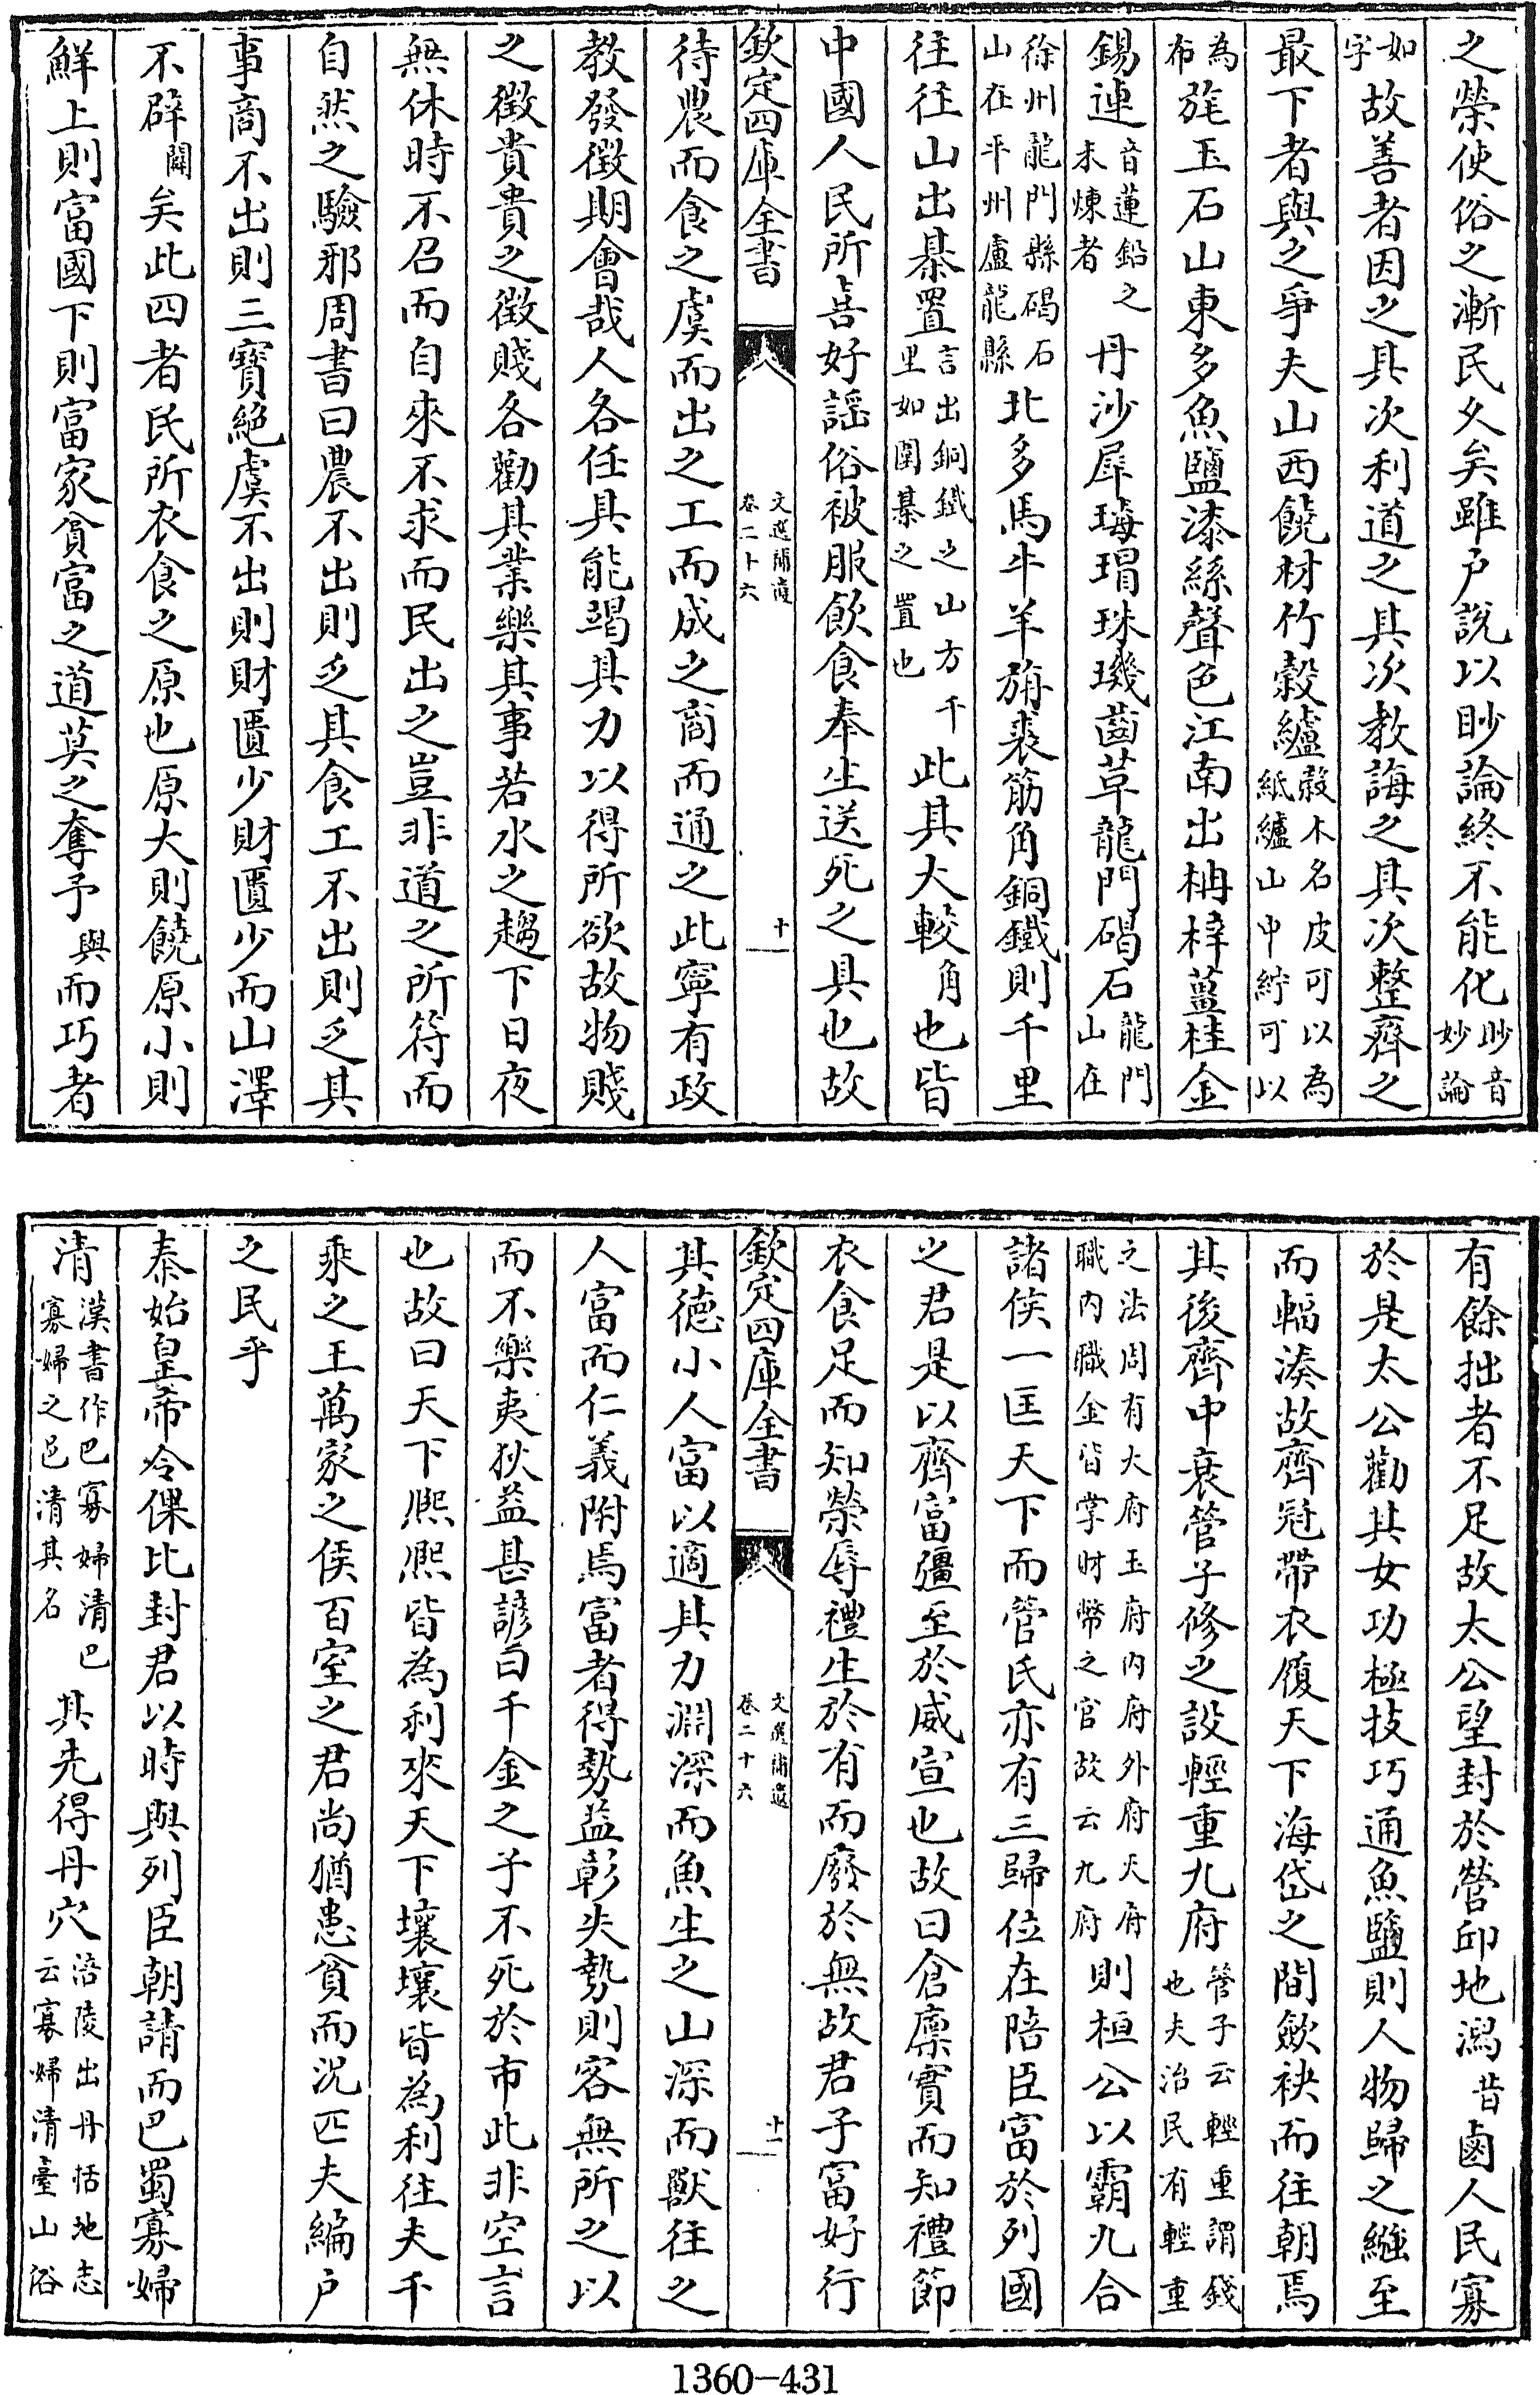 之榮使俗之漸民久矣雖戶說以眇論終不能化眇音妙論
如字故善者因之其次利道之其次教誨之其次整齊之
最下者與之爭夫山西饒材竹穀纑穀木名皮可以為紙纑山中紵可以
為布旄玉石山東多魚鹽漆絲聲色江南出枏梓薑桂金
錫連音蓮鉛之未煉者丹沙犀瑇瑁珠璣齒草龍門碣石龍門山在
徐州龍門縣碣石山在平州盧龍縣北多馬牛羊旃裘筋角銅鐵則千里
往往山出棊置言出銅鐵之山方千里如圍棊之置也此其大較角也皆
中國人民所喜好謡俗被服飲食奉生送死之具也故
欽定四庫全書 文選補遺 卷二十六 十
待農而食之虞而出之工而成之商而通之此寧有政
教發徴期會哉人各任其能竭其力以得所欲故物賤
之徴貴貴之徴賤各勸其業樂其事若水之趨下日夜
無休時不召而自來不求而民出之豈非道之所符而
自然之驗邪周書曰農不出則乏其食工不出則乏其
事商不出則三寳絶虞不出則財匱少財匱少而山澤
不辟闢矣此四者民所衣食之原也原大則饒原小則
鮮上則富國下則富家貧富之道莫之奪予與而巧者
有餘拙者不足故太公望封於營邱地潟昔鹵人民寡
於是太公勸其女功極技巧通魚鹽則人物歸之繦至
而輻湊故齊冠帶衣履天下海岱之間歛袂而往朝焉
其後齊中衰管子修之設輕重九府管子云輕重謂錢也夫治民有輕重
之法周有大府玉府内府外府天府職内職金皆掌財幣之官故云九府則桓公以霸九合
諸侯一匡天下而管氏亦有三歸位在陪臣富於列國
之君是以齊富彊至於威宣也故曰倉廩實而知禮節
衣食足而知榮辱禮生於有而廢於無故君子富好行
欽定四庫全書 文選補遺 卷二十六 十一
其徳小人富以適其力淵深而魚生之山深而獸往之
人富而仁義附焉富者得勢益彰失勢則客無所之以
而不樂夷狄益甚諺曰千金之子不死於市此非空言
也故曰天下熙熙皆為利來天下壤壤皆為利往夫千
乘之王萬家之侯百室之君尚猶患貧而況匹夫編戶
之民乎
秦始皇帝令倮比封君以時與列臣朝請而巴蜀寡婦
清漢書作巴寡婦清巴寡婦之邑清其名其先得丹穴涪陵出丹括地志云寡婦清臺山俗
1360-431